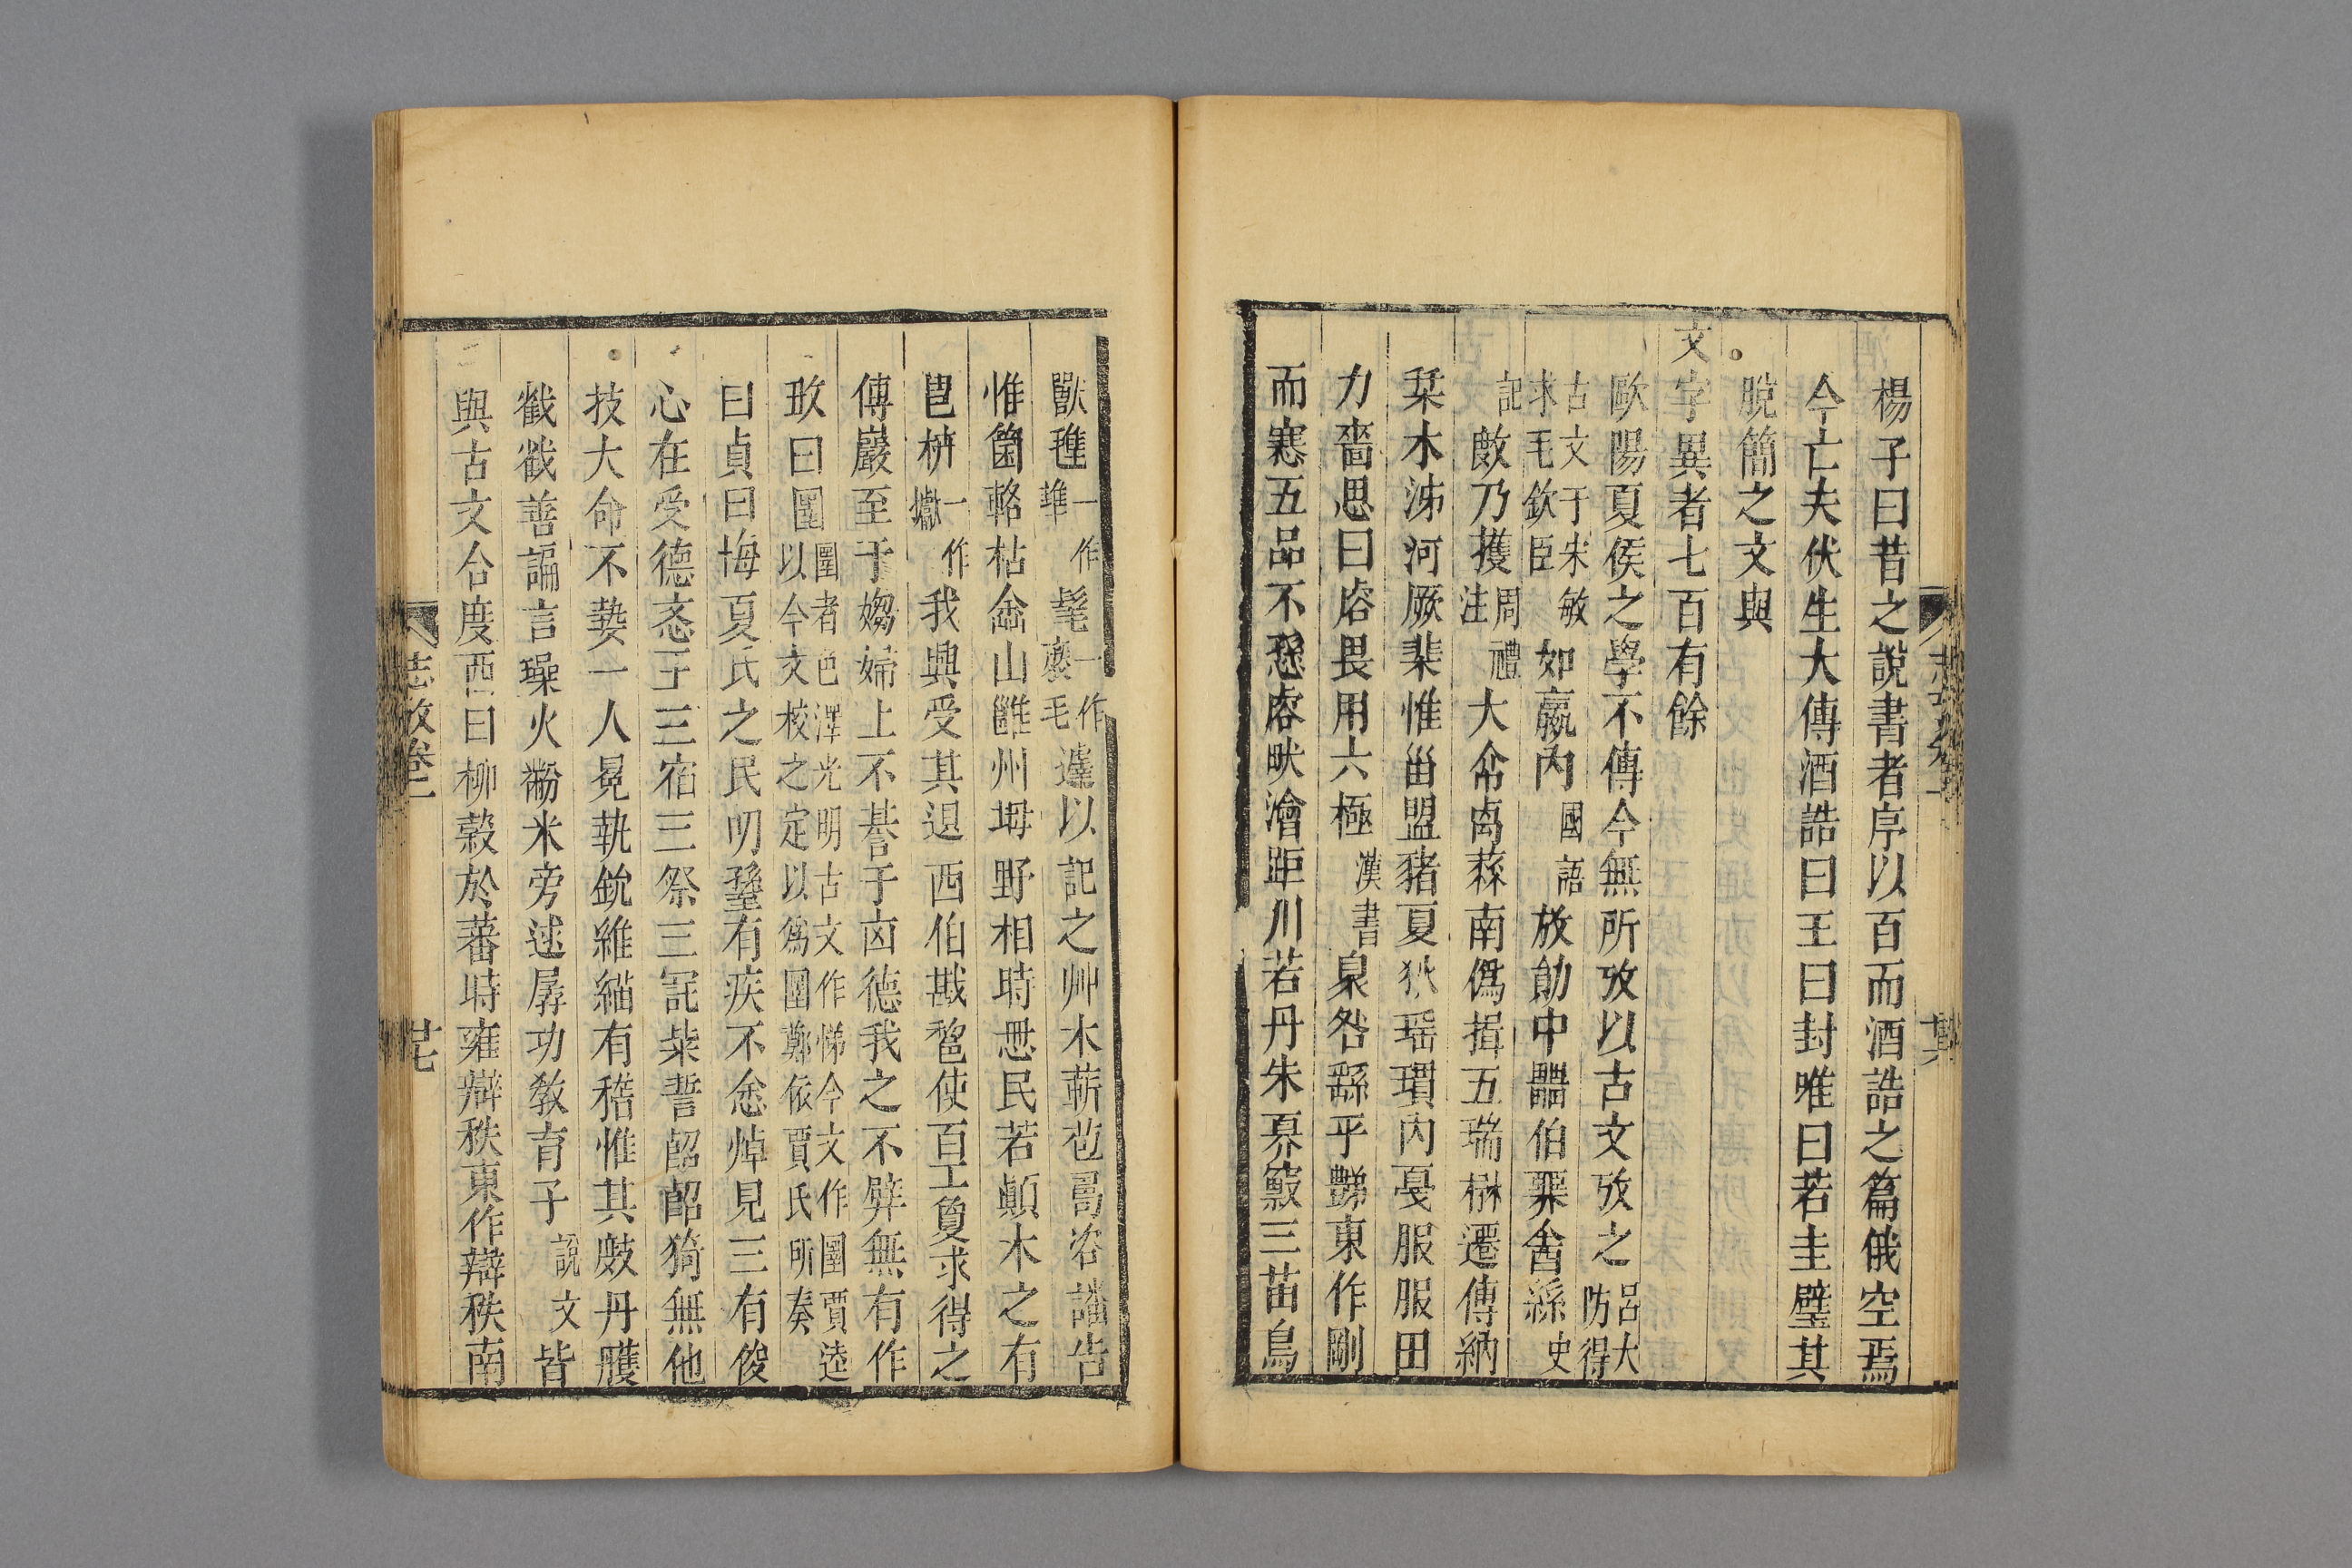 楊子曰昔之說書者序以百而酒誥之篇俄空焉
今亡夫伏生大傳酒誥曰王曰封唯曰若圭璧其
脫簡之文與
文字異者七百有餘
歐陽夏侯之學不傳今無所攷以古文攷之呂大防得
古文于宋敏求毛欽臣如嬴內國語放勛中𤳳伯棐舍繇史
記敼乃擭周禮注大命卨蔡南僞揖五瑞遷傳納
栞木沇河厥棐惟甾盟豬夏狄瑶瑻內戞服服田
力嗇思曰𧮷畏用六極漢書泉咎繇平豒東作剛
而寒五品不愻𧮷畎澮距川若丹朱奡竄三苗鳥
獸𣯍一作毴髦一作毛以記之艸木蔪苞曷咨譒告
惟箘輅枯嵞山雝州坶野相時民若顚木之有
枿一作巘我興受其退西伯戡使百工夐求得之
傅巖至于媰婦上不諅于凶德我之不辟無有作
敃曰圛圛者色澤光明古文作悌今文作圛賈逵以今文校之定以爲圛鄭依賈氏所奏
曰貞曰悔夏氏之民叨有疾不悆焯見三有俊
心在受德忞王三宿三祭三詫柴誓䛒䛒猗無他
技大命不摯一人冕執銳維緢有稽惟其敗丹雘
戩戩善諞言璪火黺米旁逑孱功敎育子說文皆
與古文合度西曰柳穀於蕃時雍辯秩東作辯秩南
志攷卷二
廿七